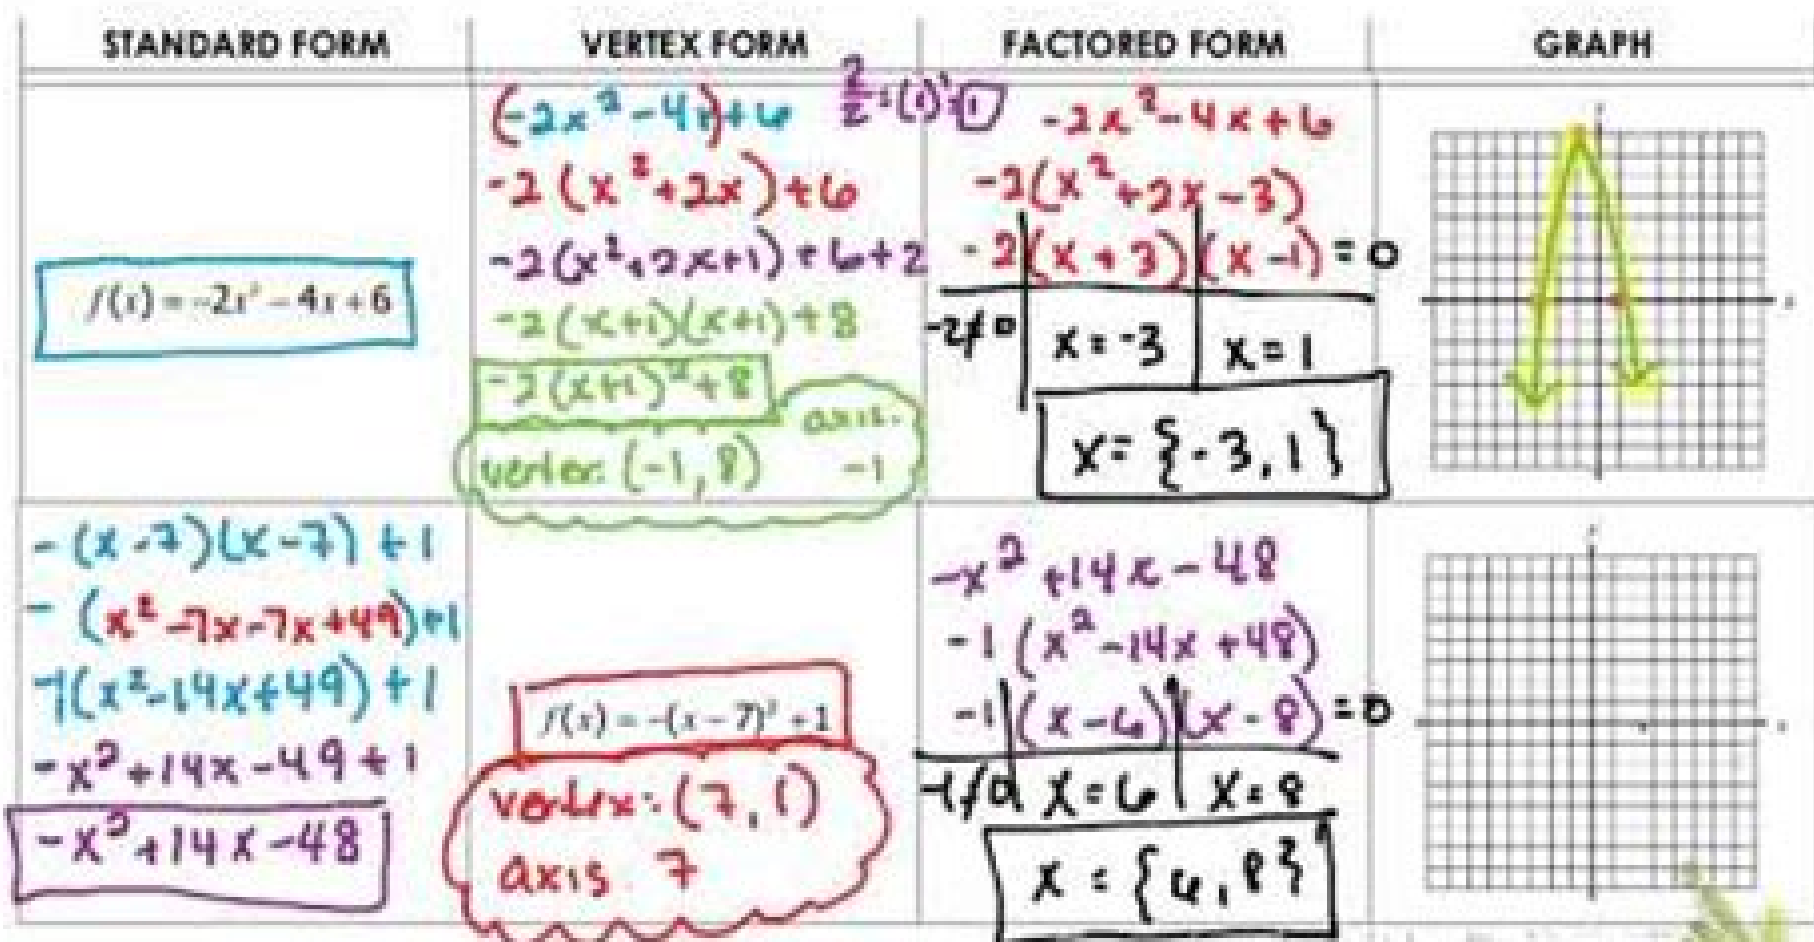 STANDARD FORM
VERTEX FORM
FACTORED FORM
GRAPH
f(x) = -2x² - 4x + 6
(-2x² - 4x) + 6
2/2 = (1)² = 1
-2(x² + 2x) + 6
-2(x² + 2x + 1) + 6 + 2
-2(x+1)(x+1) + 8
-2(x+1)² + 8
axis:
vertex: (-1, 8) -1
-2x² - 4x + 6
-2(x² + 2x - 3)
-2(x + 3)(x - 1) = 0
-2≠0 x = -3 x = 1
x = {-3, 1}
-(x - 7)(x - 7) + 1
-(x² - 7x - 7x + 49) + 1
-1(x² - 14x + 49) + 1
-x² + 14x - 49 + 1
-x² + 14x - 48
f(x) = -(x - 7)² + 1
vertex: (7, 1)
axis 7
-x² + 14x - 48
-1(x² - 14x + 48)
-1(x - 6)(x - 8) = 0
-1≠0 x = 6 x = 8
x = {6, 8}